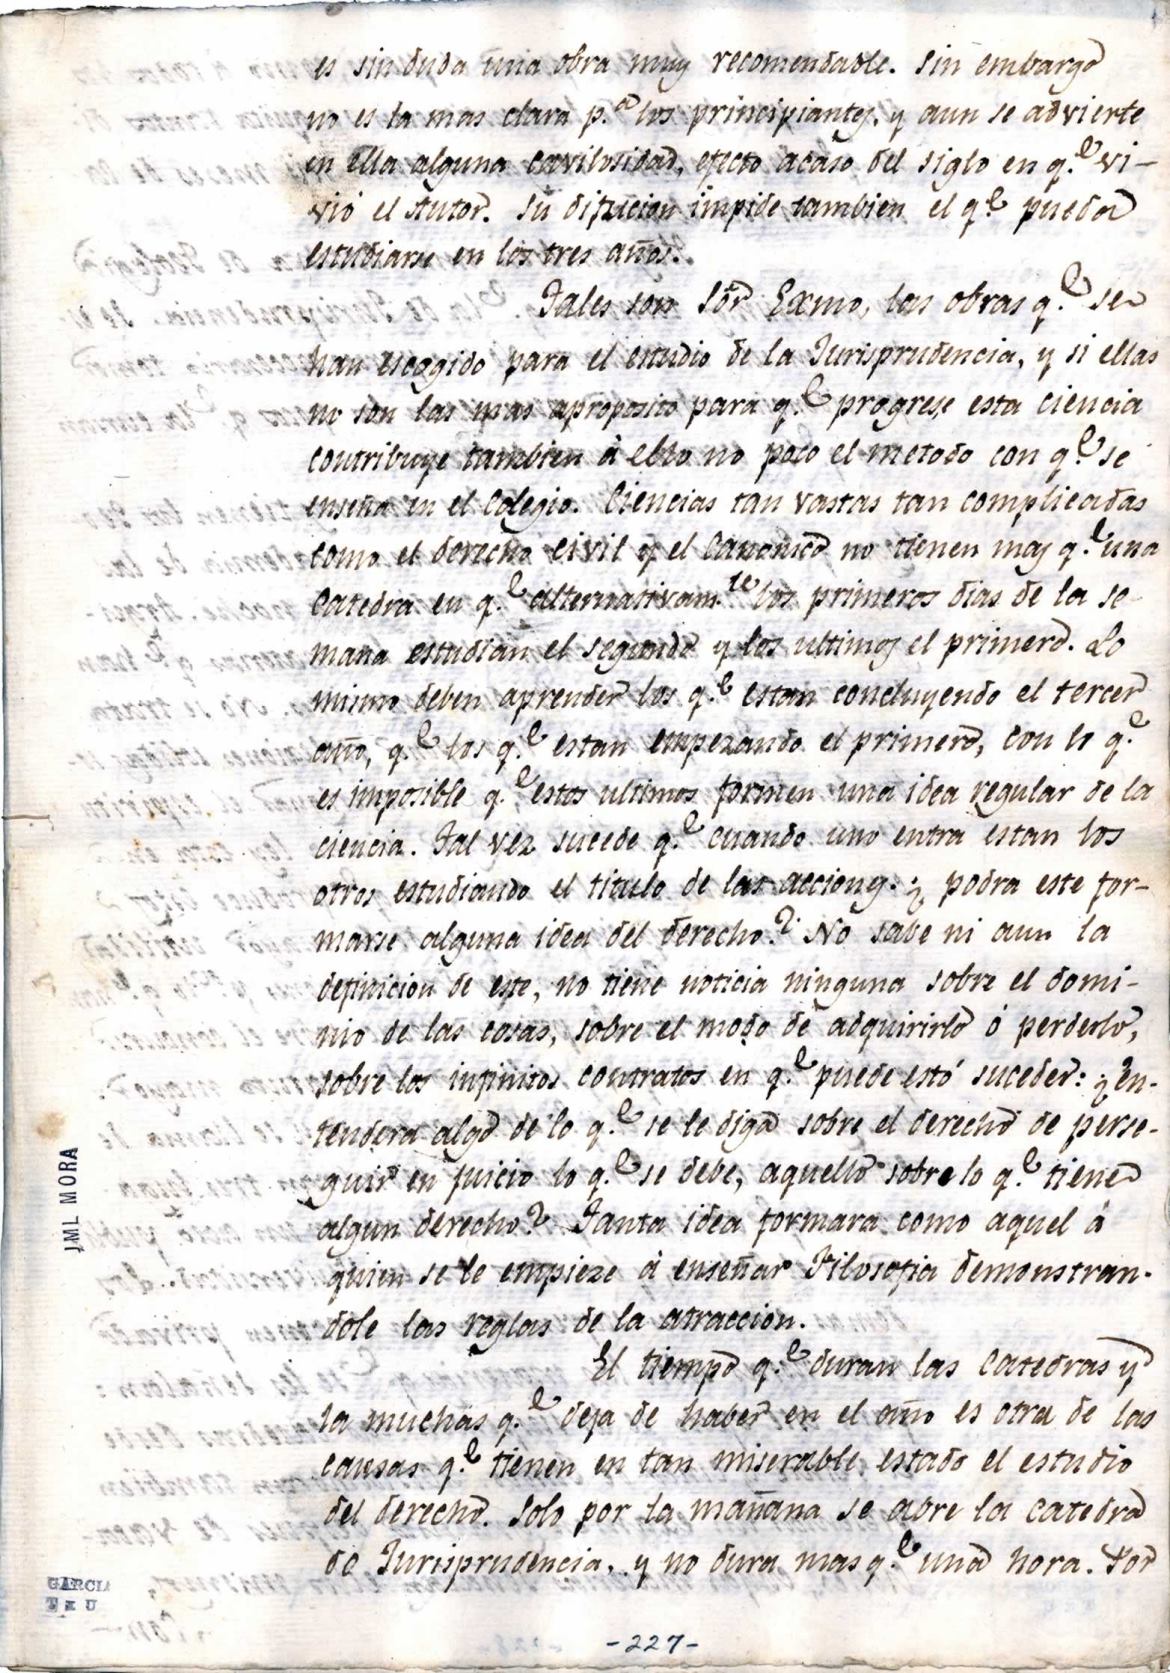 es sin duda una obra muy recomendable. Sin embargo
no es la mas clara p.ª los principiantes, y aun se advierte
en ella alguna cavilosidad, efecto acaso del siglo en q.e vi-
vió el Autor. Su difucion impide tambien el q.e pueda
estudiarse en los tres años.
Tales son Sõr Exmo, las obras q.e se
han escogido para el estudio de la Jurisprudencia, y si ellas
no son las mas aproposito para q.e progrese esta ciencia
contribuye tambien á ello no poco el metodo con q.e se
enseña en el Colegio. Ciencias tan vastas tan complicadas
como el derecho civil y el Canonico no tienen mas q.e una
Catedra en q.e alternativam.te los primeros dias de la se-
mana estudian el segundo y los ultimos el primero. Lo
mismo deben aprender los q.e estan concluyendo el tercer
año, q.e los q.e estan empezando el primero, con lo q.e
es imposible q.e estos ultimos formen una idea regular de la
ciencia. Tal vez sucede q.e cuando uno entra estan los
otros estudiando el titulo de las acciones. ¿podra este for-
marse alguna idea del derecho? No sabe ni aun la
definicion de este, no tiene noticia ninguna sobre el domi-
nio de las cosas, sobre el modo de adquirirlo ó perderlo,
sobre los infinitos contratos en q.e puede estó suceder: ¿en-
tendera algo de lo q.e se le diga sobre el derecho de perse-
guir en juicio lo q.e se debe, aquello sobre lo q.e tiene
algun derecho? Tanta idea formara como aquel á
quien se le empieze á enseñar Filosofia demonstran-
dole las reglas de la atraccion.
El tiempo q.e duran las Catedras y
la muchas q.e deja de haber en el año es otra de las
causas q.e tienen en tan miserable estado el estudio
del derecho. Solo por la mañana se abre la Catedra
de Jurisprudencia, y no dura mas q.e una hora. Por
JML MORA
GARCIA
-227-